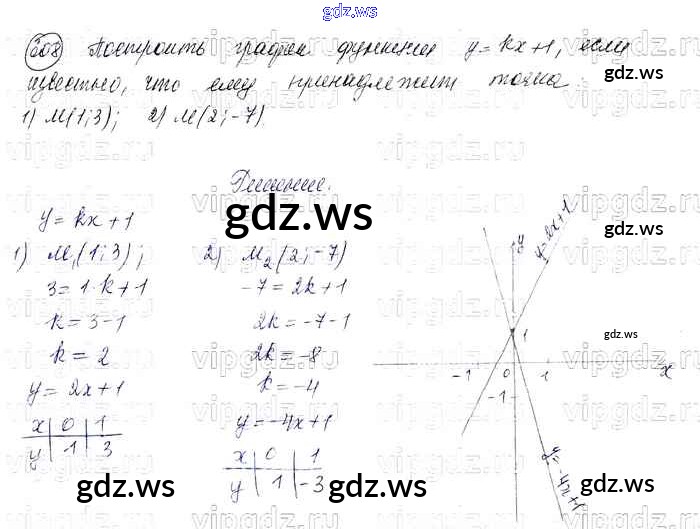 gdz.ws
308 Построить график функции y = kx+1, если
известно, что ему принадлежит точка
1) M(1;3); 2) M(2;-7)
Решение.
y = kx+1
1) M₁(1;3);
3 = 1·k+1
k = 3-1
k = 2
y = 2x+1
x 0 1
y 1 3
2) M₂(2;-7)
-7 = 2k+1
2k = -7-1
2k = -8
k = -4
y = -4x+1
x 0 1
y 1 -3
y
y=2x+1
1
-1 0 1 x
-1
y=-4x+1
gdz.ws
gdz.ws
gdz.ws
gdz.ws
gdz.ws
gdz.ws
vipgdz.ru